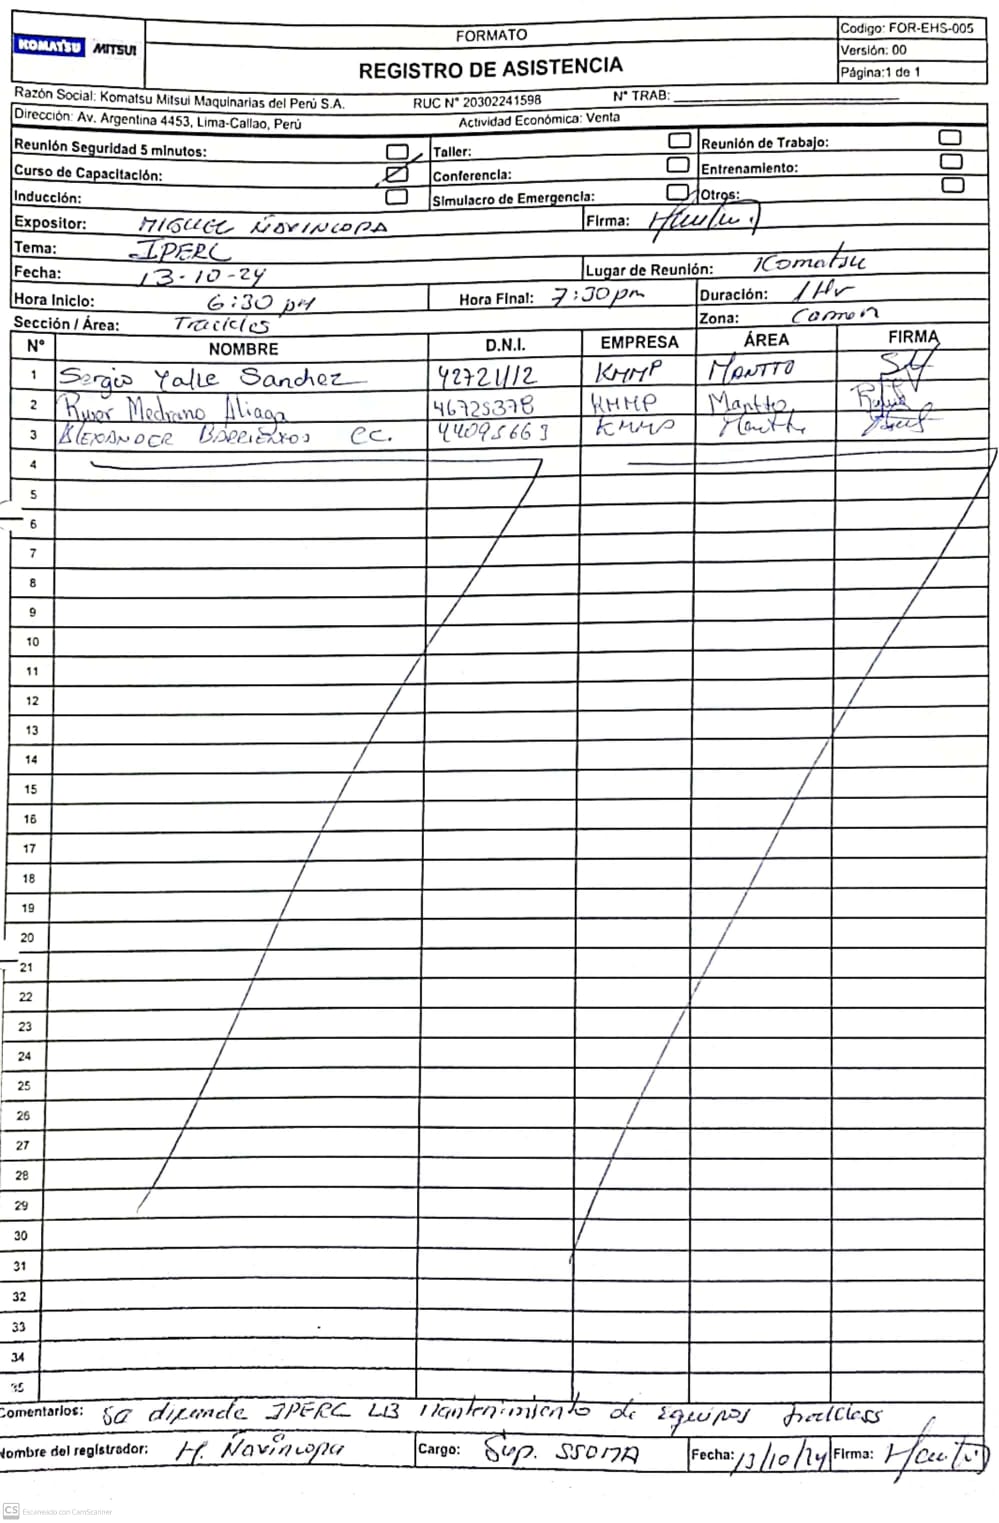 KOMATSU MITSUI
FORMATO
REGISTRO DE ASISTENCIA
Codigo: FOR-EHS-005
Versión: 00
Página:1 de 1
Razón Social: Komatsu Mitsui Maquinarias del Perú S.A. RUC N° 20302241598 N° TRAB:
Dirección: Av. Argentina 4453, Lima-Callao, Perú Actividad Económica: Venta
Reunión Seguridad 5 minutos: Taller: Reunión de Trabajo:
Curso de Capacitación: Conferencia: Entrenamiento:
Inducción: Simulacro de Emergencia: Otros:
Expositor: MIGUEL ÑAVINCOPA Firma:
Tema: IPERC
Fecha: 13-10-24 Lugar de Reunión: Komatsu
Hora Inicio: 6:30 pm Hora Final: 7:30pm Duración: 1 Hr
Sección / Área: Zona:
N° NOMBRE D.N.I. EMPRESA ÁREA FIRMA
1 Sergio Yalle Sanchez 42721112 KMMP MANTTO
2 Medrano Aliaga 46725378 KMMP Mantto
3 ALEXANDER BARRIENTOS CC. 44095663 KMMP Mantto
4
5
6
7
8
9
10
11
12
13
14
15
16
17
18
19
20
21
22
23
24
25
26
27
28
29
30
31
32
33
34
35
Comentarios: Se difunde IPERC LB Mantenimiento de Equipos trackless
Nombre del registrador: M. Ñavincopa Cargo: Sup. SSOMA Fecha: 13/10/24 Firma:
CS Escaneado con CamScanner